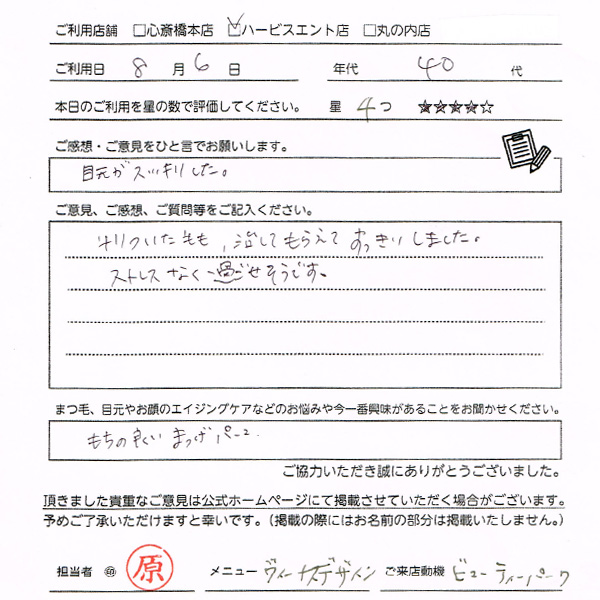 ご利用店舗 □心斎橋本店 ☑ハービスエント店 □丸の内店
ご利用日 8 月 6 日 年代 40 代
本日のご利用を星の数で評価してください。 星 4 つ ★★★★☆
ご感想・ご意見をひと言でお願いします。
目元がスッキリした。
ご意見、ご感想、ご質問等をご記入ください。
も, 治してもらえて すっきりしました。
ストレスなく 過ごせそうです。
まつ毛、目元やお顔のエイジングケアなどのお悩みや今一番興味があることをお聞かせください。
もちの良い まつげパーマ
ご協力いただき誠にありがとうございました。
頂きました貴重なご意見は公式ホームページにて掲載させていただく場合がございます。
予めご了承いただけますと幸いです。（掲載の際にはお名前の部分は掲載いたしません。）
担当者 ㊞ 原 メニュー ヴィーナスデザイン ご来店動機 ビューティーパーク